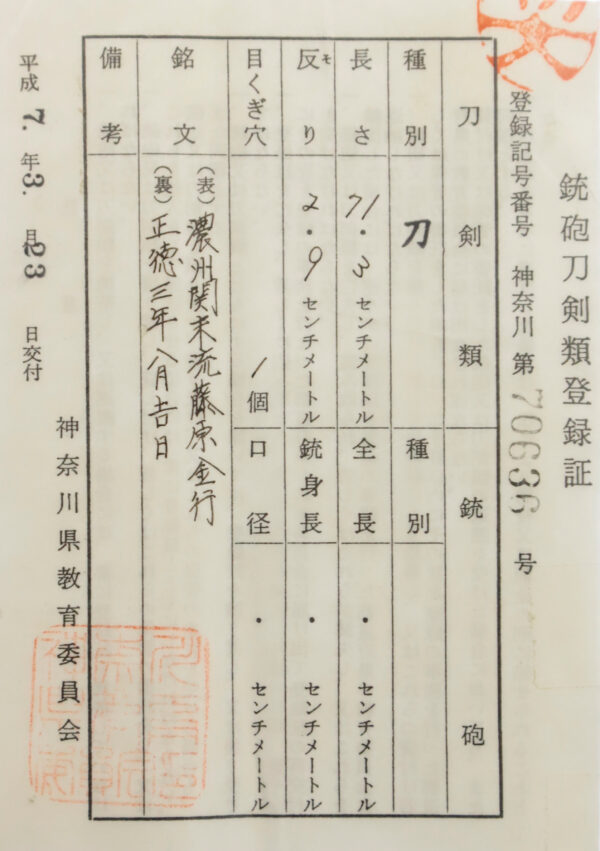 銃砲刀剣類登録証
登録記号番号 神奈川 第 70636 号
刀剣類
銃砲
種別 刀
種別
長さ 71.3 センチメートル
全長 ・ センチメートル
反り 2.9 センチメートル
モ
銃身長 ・ センチメートル
目くぎ穴 1個
口径 ・ センチメートル
銘文
(表)濃州関末流藤原金行
(裏)正徳三年八月吉日
備考
平成 7.年 3.月 23 日交付
神奈川県教育委員会